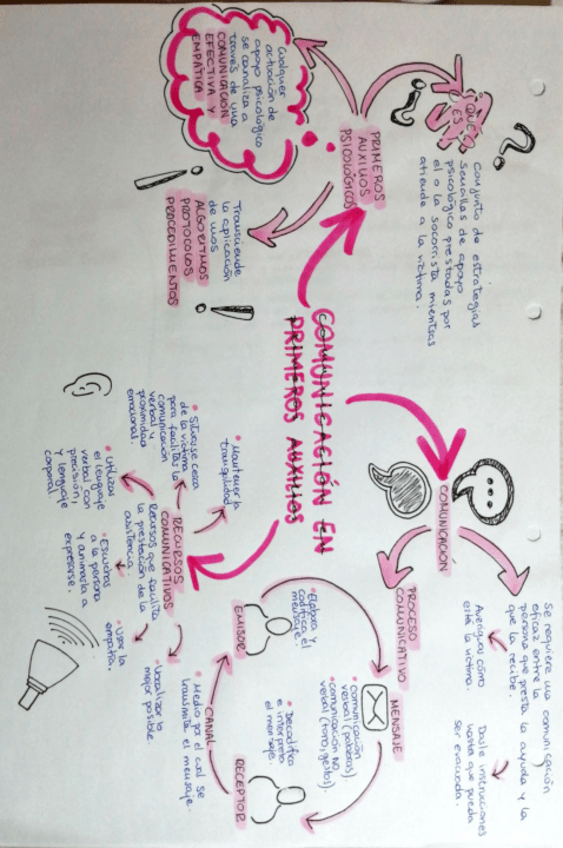 COMUNICACIÓN EN
PRIMEROS AUXILIOS
PRIMEROS
AUXILIOS
PSICOLÓGICOS
¿QUÉ
ES
?
Conjunto de estrategias
sencillas de apoyo
psicológico prestadas por
el o la socorrista mientras
atiende a la víctima.
Cualquier
actuación de
apoyo psicológico
se canaliza a
través de una
COMUNICACIÓN
EFECTIVA Y
EMPÁTICA
Transciende
la aplicación
de unos
ALGORITMOS
PROTOCOLOS
PROCEDIMIENTOS
COMUNICACIÓN
Se requiere una comunicación
eficaz entre la
persona que presta la ayuda y la
que la recibe.
Averiguar cómo
está la víctima.
Darle instrucciones
hasta que pueda
ser evacuada.
PROCESO
COMUNICATIVO
EMISOR
• Elabora y
codifica el
mensaje.
MENSAJE
• comunicación
verbal (palabras)
• comunicación NO
verbal (tono, gestos).
RECEPTOR
• Decodifica
e interpreta
el mensaje.
CANAL
• Medio por el cual se
transmite el mensaje.
RECURSOS
COMUNICATIVOS
Recursos que facilita
la prestación de la
asistencia
• Mantener la
tranquilidad
• Situarse cerca
de la víctima
para facilitar la
comunicación
verbal y
proximidad
emocional.
• Utilizar
el lenguaje
verbal con
precisión,
y lenguaje
corporal.
• Escuchar
a la persona
y animarla a
expresarse.
• Usar la
empatía.
• Vocalizar lo
mejor posible.